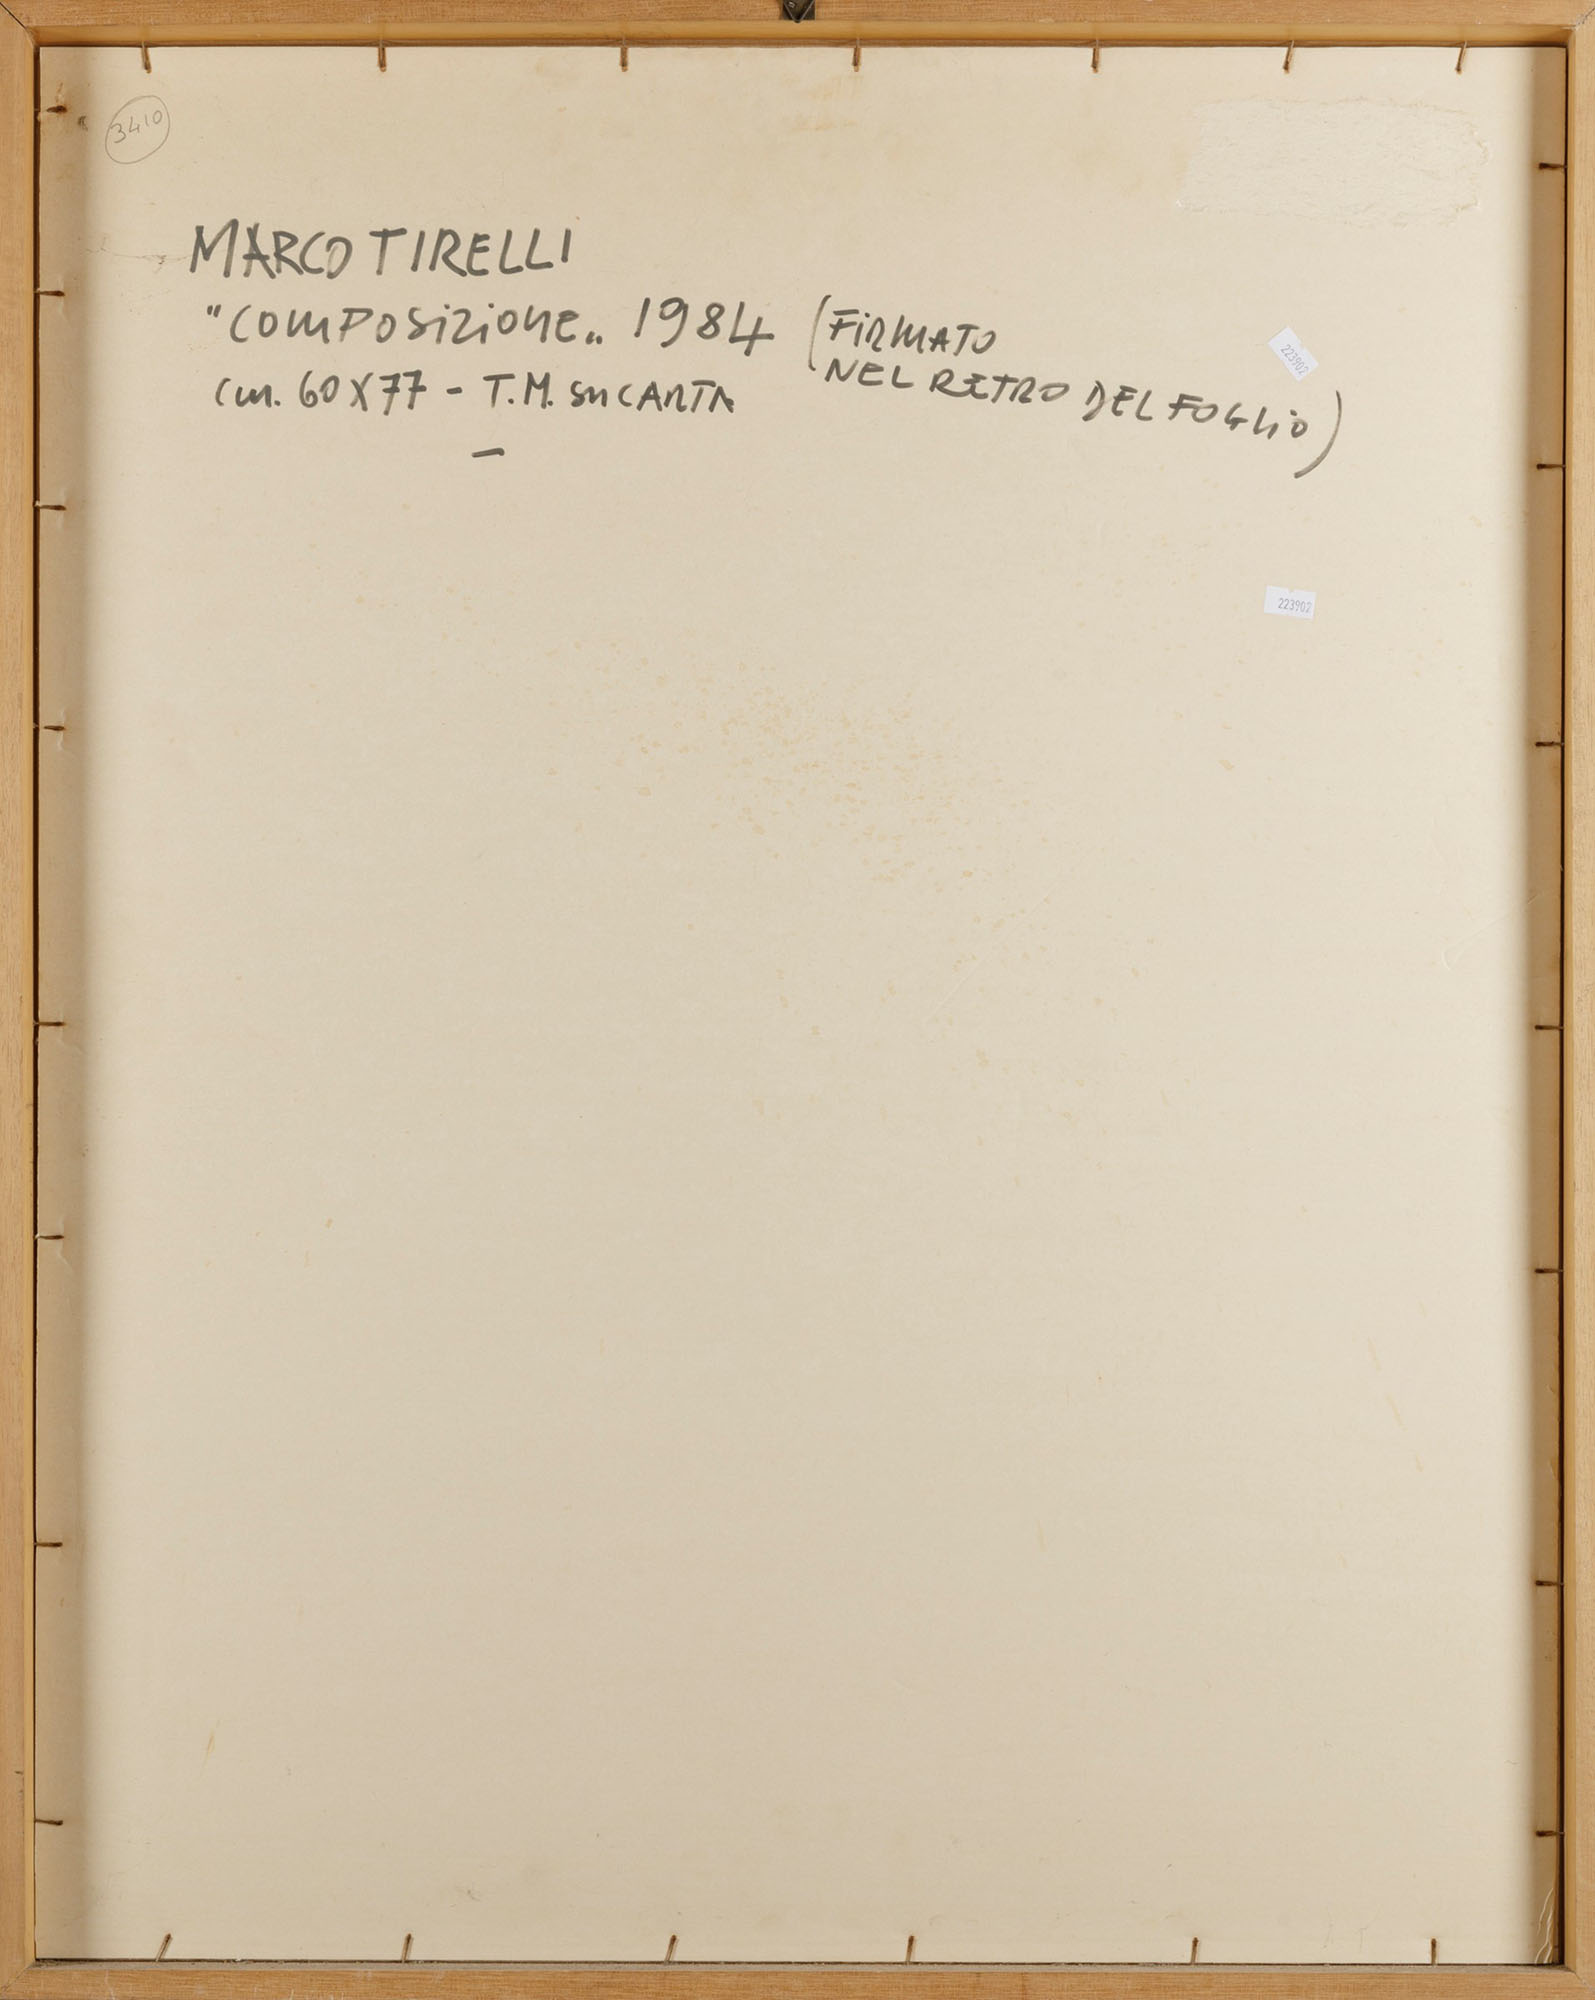 3410
MARCO TIRELLI
"COMPOSIZIONE„ 1984 (FIRMATO
NEL RETRO DEL FOGLIO)
cm. 60X77 - T.M. SU CARTA
223902
223902